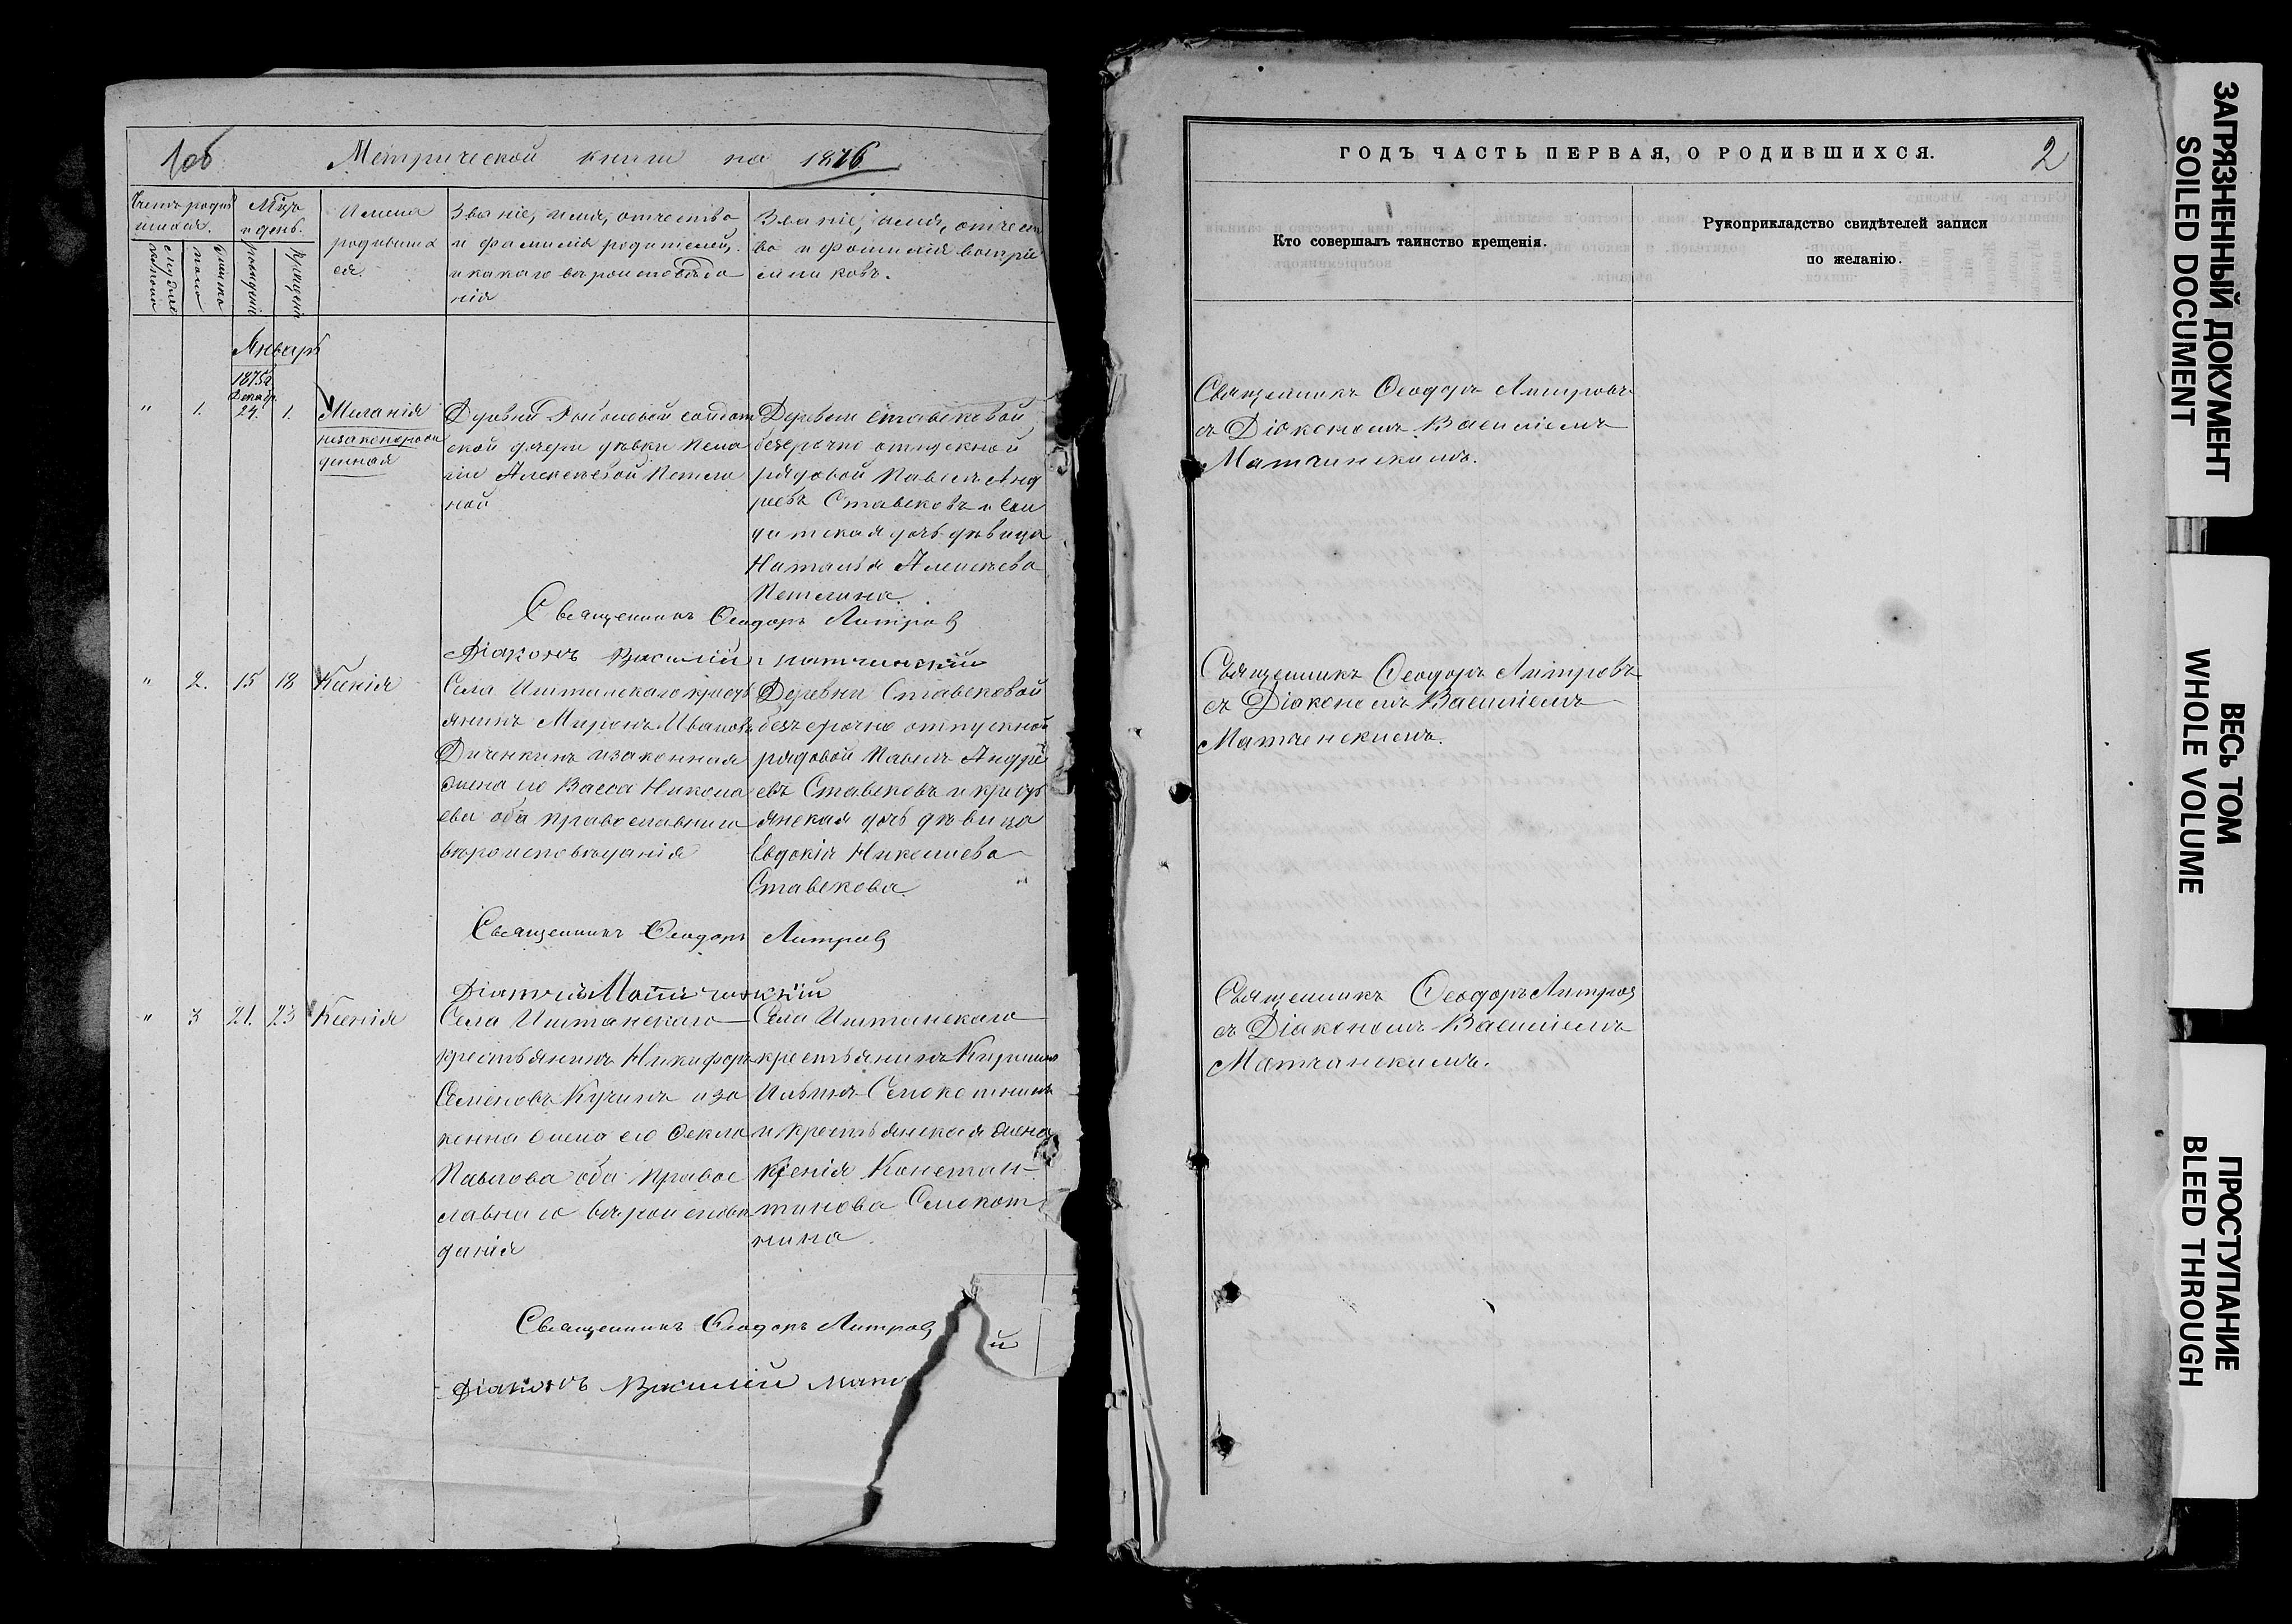 1об
Метрической книги на 1876
Счетъ родив
шихся.
Мѣц.
и день.
Имена
родивших
ся.
Званіе, имя, отчество
и фамилія родителей,
и какого вѣроисповѣда
нія
Званіе, имя, отчест
во и фамилія воспрі
емниковъ.
мужска
женска
рожденія
крещенія
Январь
1875г.
Декабр.
" 1. 24. 1.
Меланія
незаконорож
денная
Деревни солдат
ской дочери дѣвки Пела
гіи Алексѣевой Петели
ной
Деревни Ставсковой
безсрочно отпускной
рядовой Павелъ Анд
реевъ Ставсковъ и сол
датская дочь дѣвица
Наталья Алексѣева
Петелина.
Священникъ Ѳеодоръ Литровъ
Діаконъ Василій Матчинскій
" 2. 15 18 Ксенія
Села Иштанскаго кресть
янинъ Миронъ Ивановъ
и законная
жена его Васса Никола
ева оба православнаго
вѣроисповѣданія
Деревни Ставсковой
безсрочно отпускной
рядовой Павелъ Андре
евъ Ставсковъ и кресть
янская дочь дѣвица
Евдокія Николаева
Ставскова.
Священникъ Ѳеодоръ Литровъ
Матчинскій
" 3 21. 23 Ксенія
Села Иштанскаго
крестьянинъ Никифоръ
Семеновъ Кучинъ и за
конна жена его Ѳекла
Павлова оба правос
лавнаго вѣроисповѣ
данія
Села Иштанскаго
крестьянинъ Кирилъ
Ильинъ Смокотнинъ
и крестьянская жена
Ксенія Констан-
тинова Смокот
нина
Священникъ Ѳеодоръ Литровъ
й
Діаконъ Василій Матч
ГОДЪ ЧАСТЬ ПЕРВАЯ, О РОДИВШИХСЯ.
2
Кто совершалъ таинство крещенія.
Рукоприкладство свидѣтелей записи
по желанію.
Священникъ Ѳеодоръ Литровъ
съ Діакономъ Василіемъ
Матчинскимъ.
Священникъ Ѳеодоръ Литровъ
съ Діакономъ Василіемъ
Матчинскимъ.
Священникъ Ѳеодоръ Литровъ
съ Діакономъ Василіемъ
Матчинскимъ.
ЗАГРЯЗНЕННЫЙ ДОКУМЕНТ
SOILED DOCUMENT
ВЕСЬ ТОМ
WHOLE VOLUME
ПРОСТУПАНИЕ
BLEED THROUGH